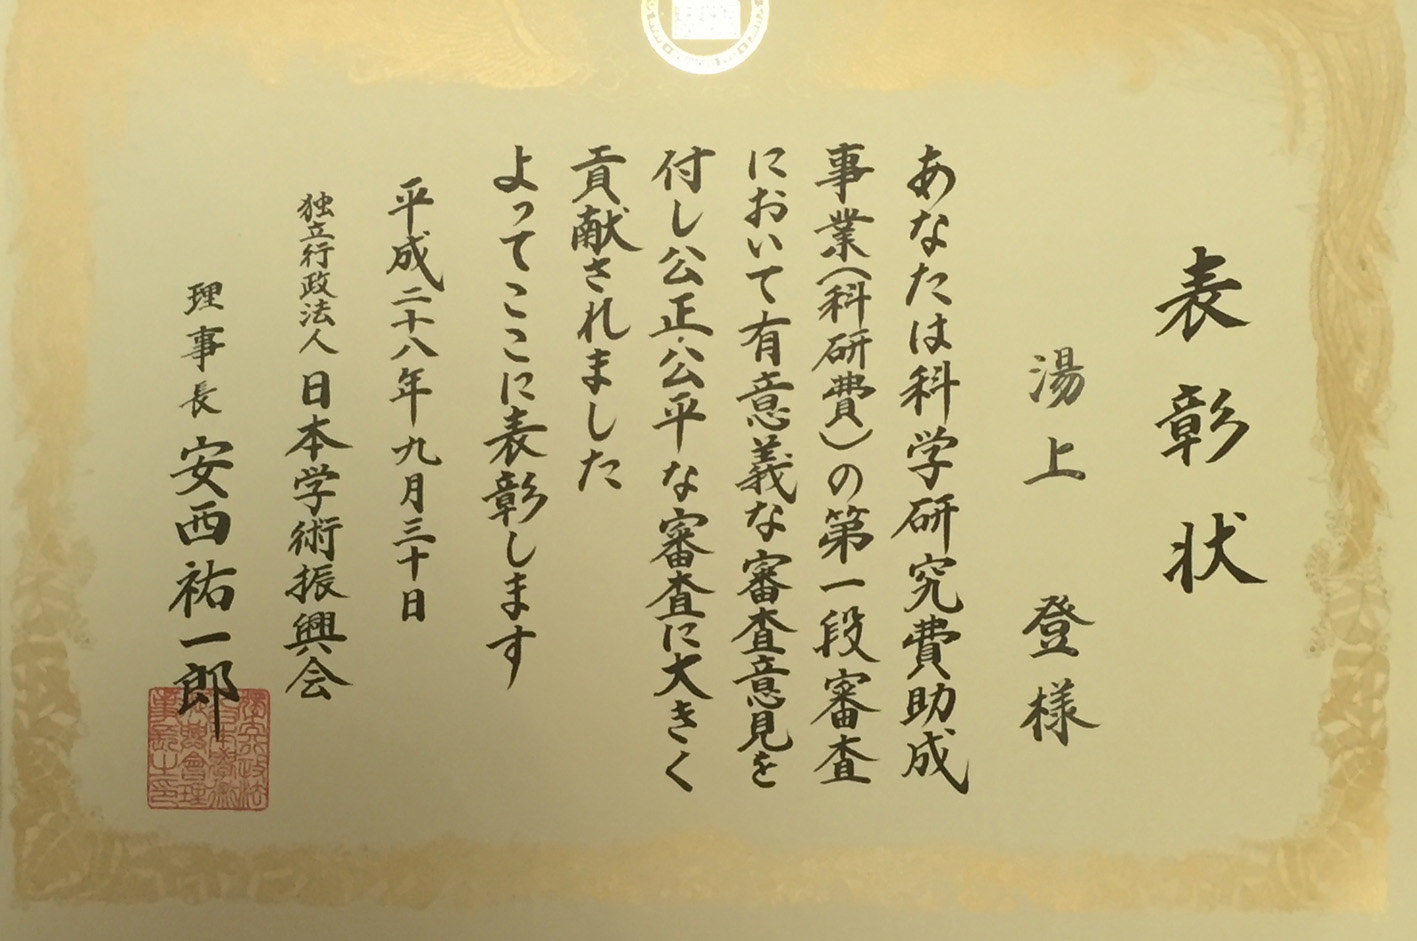 表彰状
湯上 登様
あなたは科学研究費助成
事業(科研費)の第一段審査
において有意義な審査意見を
付し公正・公平な審査に大きく
貢献されました
よってここに表彰します
平成二十八年九月三十日
独立行政法人日本学術振興会
理事長 安西祐一郎